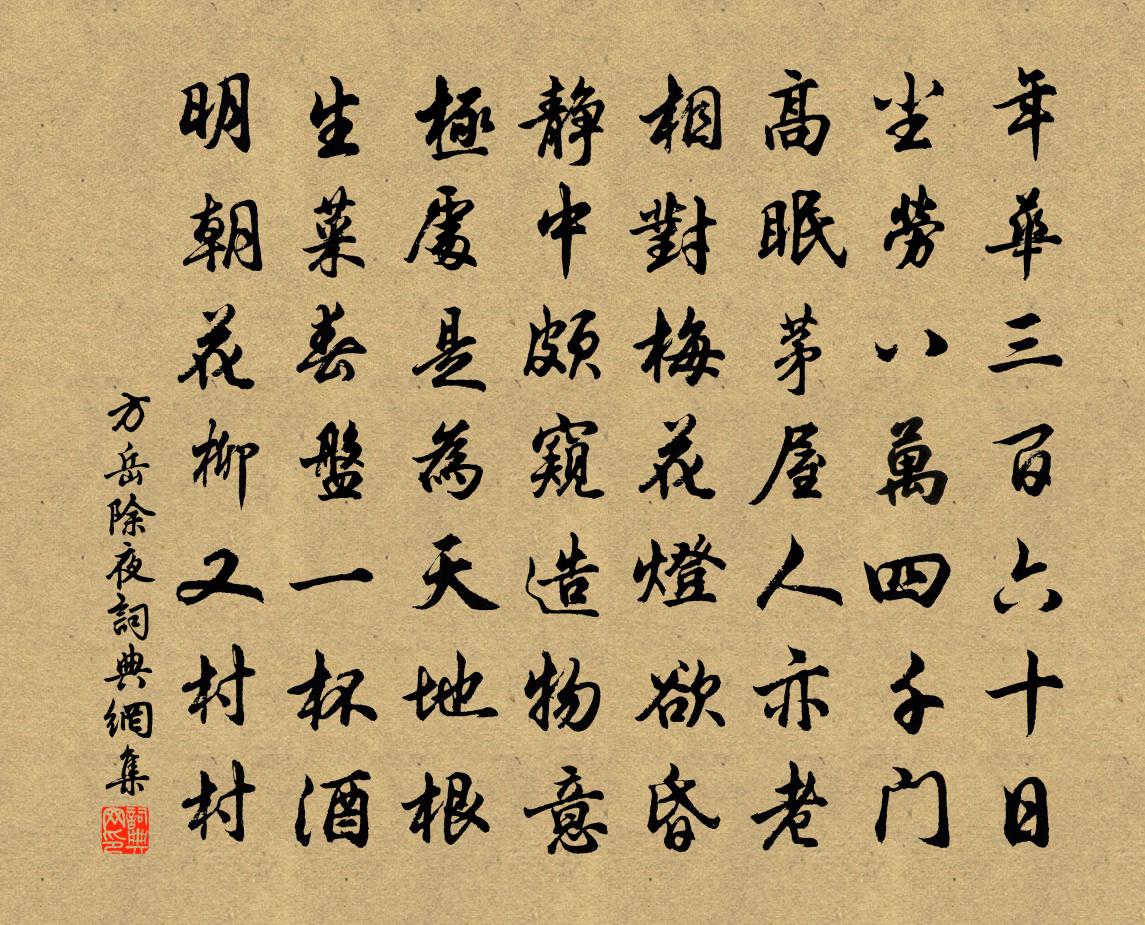 年華三百六十日
尘勞八萬四千门
高眠茅屋人亦老
相對梅花燈欲昏
靜中頗窺造物意
極處是為天地根
生菜春盤一杯酒
明朝花柳又村村
方岳除夜詞典網集
詞典网印